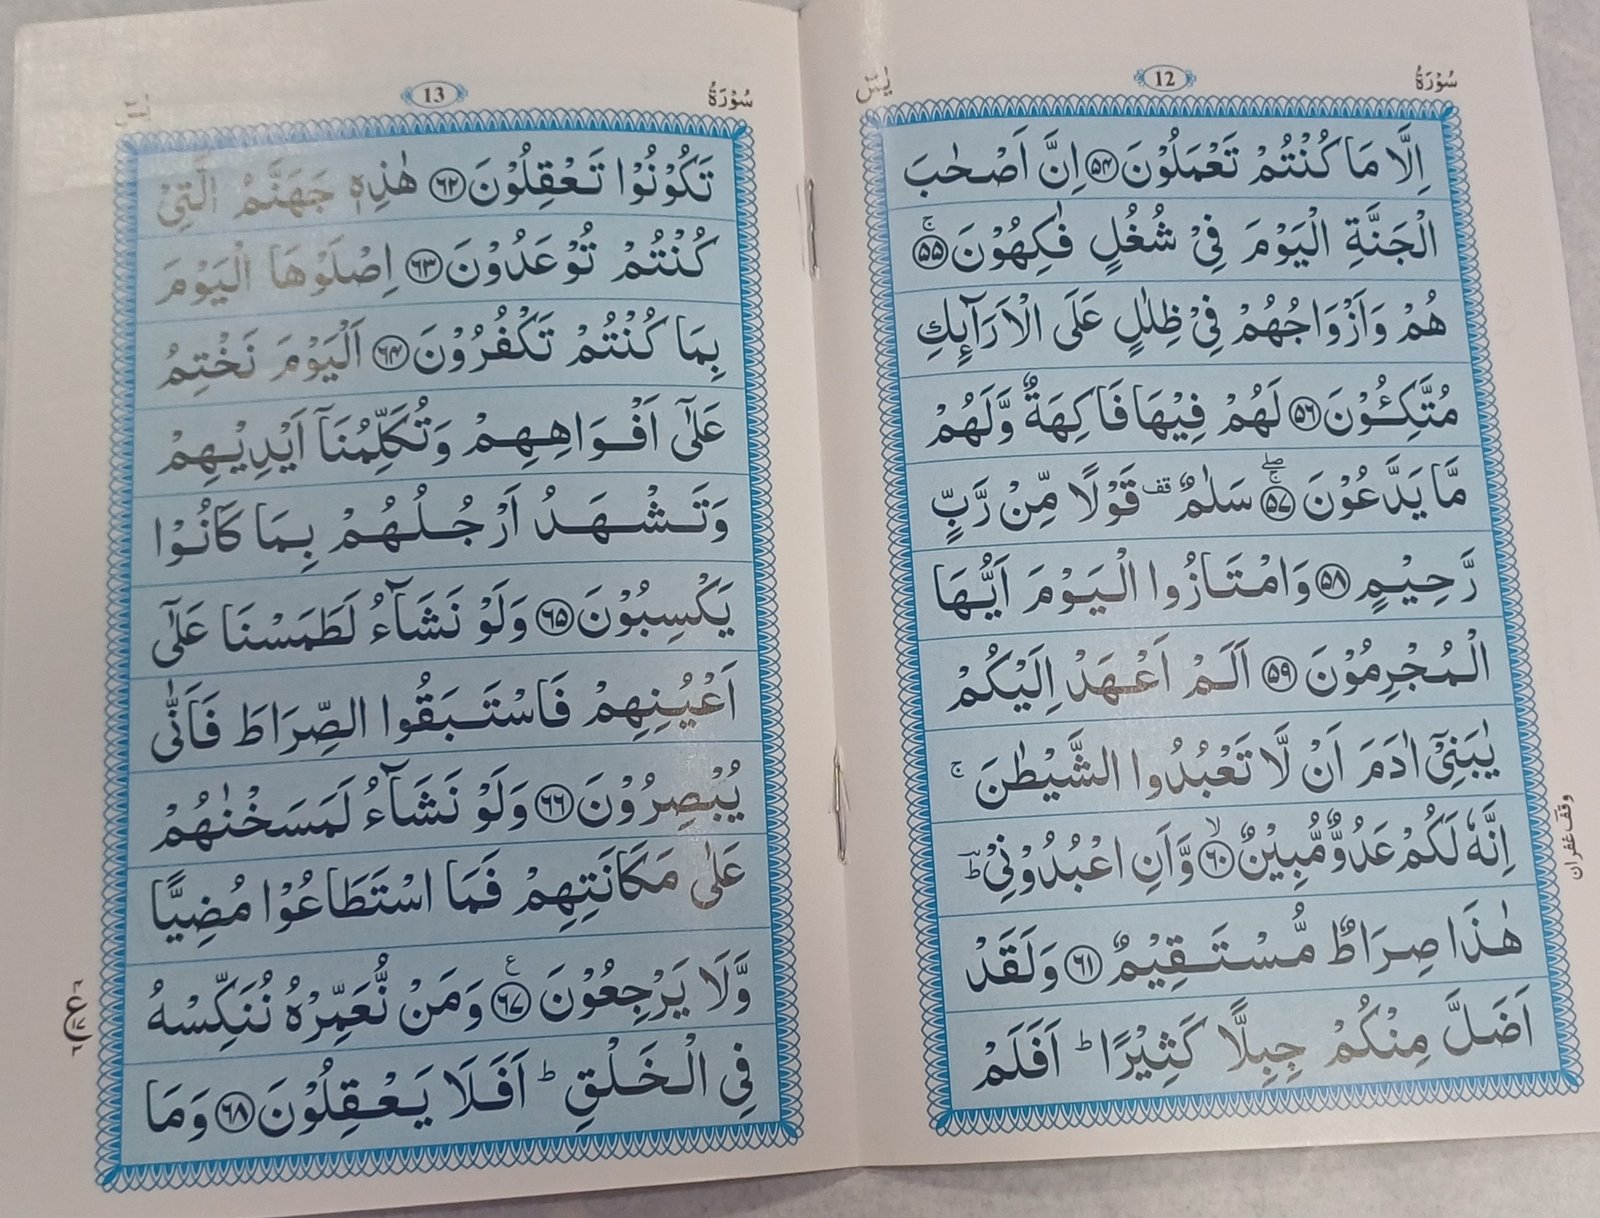 سُوْرَةُ 12 يٰسٓ
اِلَّا مَا كُنْتُمْ تَعْمَلُوْنَ ۝۵۴ اِنَّ اَصْحٰبَ
الْجَنَّةِ الْيَوْمَ فِيْ شُغُلٍ فٰكِهُوْنَ ۝۵۵ۚ
هُمْ وَاَزْوَاجُهُمْ فِيْ ظِلٰلٍ عَلَى الْاَرَآئِكِ
مُتَّكِـُٔوْنَ ۝۵۶ لَهُمْ فِيْهَا فَاكِهَةٌ وَّلَهُمْ
مَّا يَدَّعُوْنَ ۝۵۷ۚۖ سَلٰمٌ قف قَوْلًا مِّنْ رَّبٍّ
رَّحِيْمٍ ۝۵۸ وَامْتَازُوا الْيَوْمَ اَيُّهَا
الْمُجْرِمُوْنَ ۝۵۹ اَلَمْ اَعْهَدْ اِلَيْكُمْ
يٰبَنِيْٓ اٰدَمَ اَنْ لَّا تَعْبُدُوا الشَّيْطٰنَ ۚ
اِنَّهٗ لَكُمْ عَدُوٌّ مُّبِيْنٌ ۝۶۰ۙ وَّاَنِ اعْبُدُوْنِيْ ؕ
وقف غفران
هٰذَا صِرَاطٌ مُّسْتَقِيْمٌ ۝۶۱ وَلَقَدْ
اَضَلَّ مِنْكُمْ جِبِلًّا كَثِيْرًا ؕ اَفَلَمْ
سُوْرَةُ 13 يٰسٓ
تَكُوْنُوْا تَعْقِلُوْنَ ۝۶۲ هٰذِهٖ جَهَنَّمُ الَّتِيْ
كُنْتُمْ تُوْعَدُوْنَ ۝۶۳ اِصْلَوْهَا الْيَوْمَ
بِمَا كُنْتُمْ تَكْفُرُوْنَ ۝۶۴ اَلْيَوْمَ نَخْتِمُ
عَلٰٓى اَفْوَاهِهِمْ وَتُكَلِّمُنَآ اَيْدِيْهِمْ
وَتَشْهَدُ اَرْجُلُهُمْ بِمَا كَانُوْا
يَكْسِبُوْنَ ۝۶۵ وَلَوْ نَشَآءُ لَطَمَسْنَا عَلٰٓى
اَعْيُنِهِمْ فَاسْتَبَقُوا الصِّرَاطَ فَاَنّٰى
يُبْصِرُوْنَ ۝۶۶ وَلَوْ نَشَآءُ لَمَسَخْنٰهُمْ
عَلٰى مَكَانَتِهِمْ فَمَا اسْتَطَاعُوْا مُضِيًّا
وَّلَا يَرْجِعُوْنَ ۝۶۷ ع وَمَنْ نُّعَمِّرْهُ نُنَكِّسْهُ
فِي الْخَلْقِ ؕ اَفَلَا يَعْقِلُوْنَ ۝۶۸ وَمَا